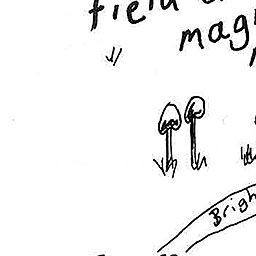 field
mag
Brigh